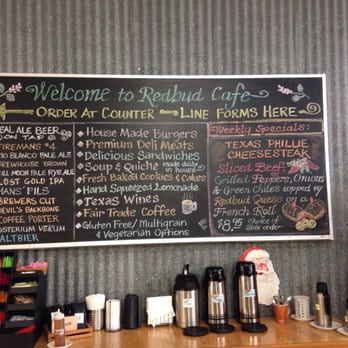 Welcome to Redbud Cafe
ORDER AT COUNTER - LINE FORMS HERE
REAL ALE BEER
ON TAP
FIREMANS #4
RIO BLANCO PALE ALE
BREWHOUSE BROWN
FULL MOON PALE RYE ALE
LOST GOLD IPA
HANS' PILS
BREWERS CUT
DEVIL'S BACKBONE
COFFEE PORTER
ALTBIER
House Made Burgers
Premium Deli Meats
Delicious Sandwiches
Soup & Quiche made daily in house
Fresh Baked Cookies & Cakes
Hand Squeezed Lemonade
Texas Wines
Fair Trade Coffee
Gluten Free/Multigrain
& Vegetarian Options
Weekly Specials:
TEXAS PHILLIE
CHEESESTEAK
Sliced Beef,
Grilled Peppers, Onions
& Green Chiles topped w/
Redbud Queso on a
French Roll
$8.95 Choice of
Side order